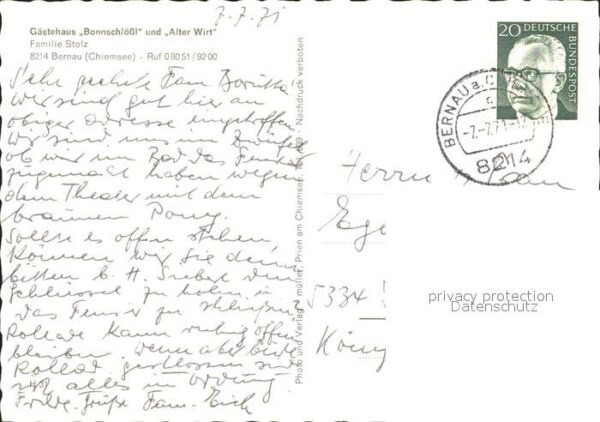 7.7.71
Gästehaus „Bonnschlößl" und „Alter Wirt"
Familie Stolz
8214 Bernau (Chiemsee) - Ruf 0 80 51 / 92 00
Sehr geehrte Fam.
wir sind gut hier an
obiger Adresse eingetroffen
Wir sind uns im Zweifel
ob wir im Bad das Fenster
zugemacht haben wegen
dem Theater mit dem
braunen Pony.
Sollte es offen stehen,
können wir Sie dann
bitten b. H. den
Schlüssel zu holen u.
das Fenster zu schließen?
Rollade kann ruhig offen
bleiben. Wenn aber beide
Rollad. geschlossen sind
ist alles in Ordnung
Frdl. Grüße Fam.
Photo und Verlag müller, Prien am Chiemsee, Nachdruck verboten
20 DEUTSCHE
BUNDESPOST
BERNAU a. C
-7.-7.71-
8214
Herrn
5334
privacy protection
Datenschutz